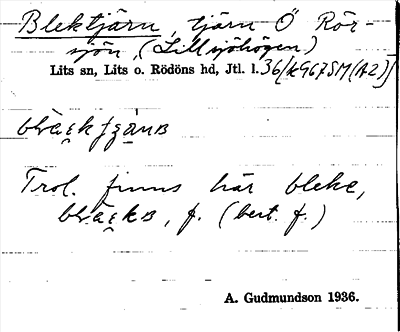 Blektjärn, tjärn Ö Rör-
sjön, (Lillsjöhögen)
Lits sn, Lits o. Rödöns hd, Jtl. l. 36/k967SM(A2)
Trol. finns här bleke,
f. (best. f.)
A. Gudmundson 1936.